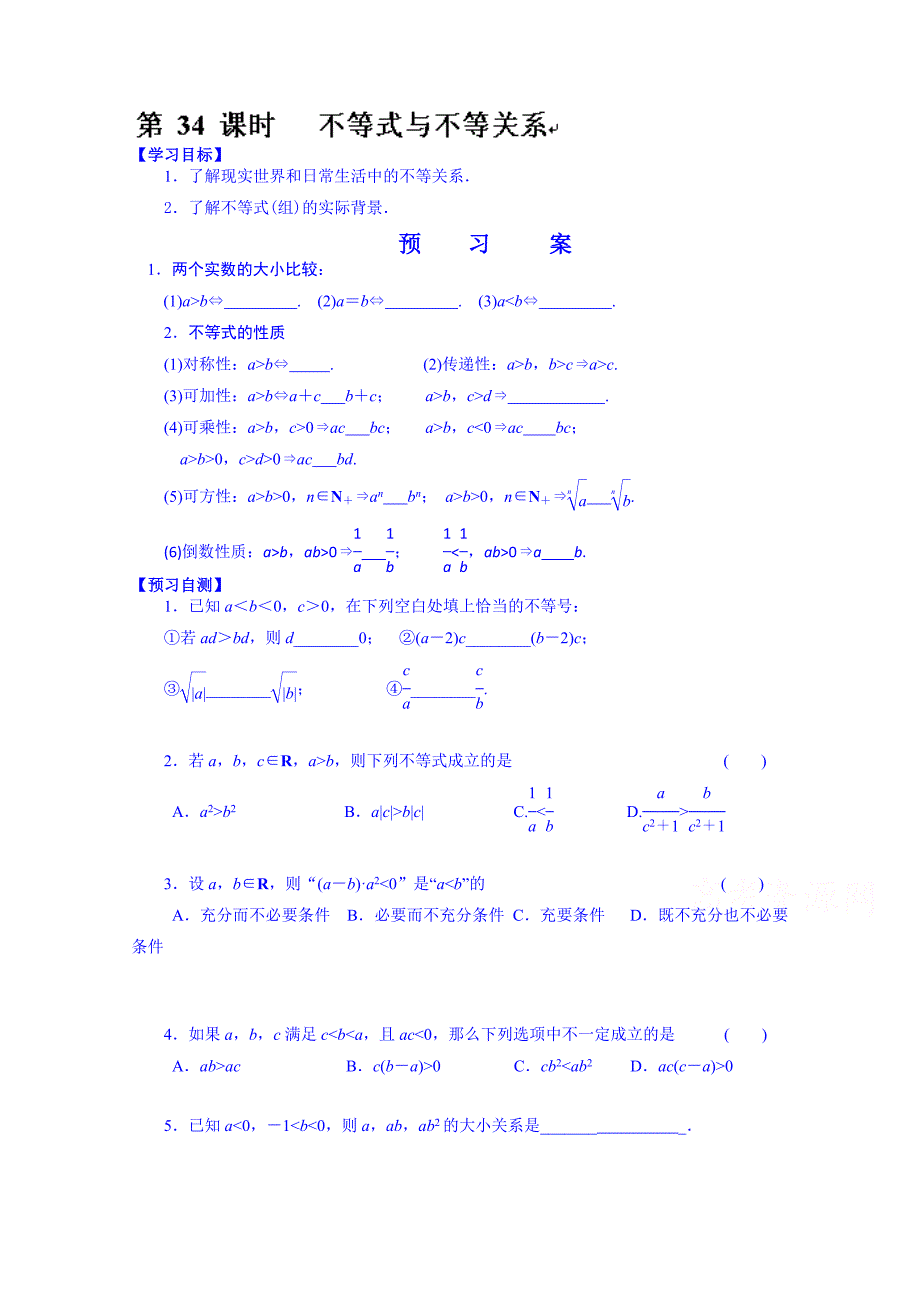 第 34 课时 不等式与不等关系↵
【学习目标】
1．了解现实世界和日常生活中的不等关系．
2．了解不等式(组)的实际背景．
预 习 案
1．两个实数的大小比较：
(1)a>b⇔_________. (2)a＝b⇔_________. (3)a<b⇔_________.
2．不等式的性质
(1)对称性：a>b⇔_____. (2)传递性：a>b，b>c⇒a>c.
(3)可加性：a>b⇔a＋c___b＋c； a>b，c>d⇒____________.
(4)可乘性：a>b，c>0⇒ac___bc； a>b，c<0⇒ac____bc；
a>b>0，c>d>0⇒ac___bd.
(5)可方性：a>b>0，n∈N₊⇒aⁿ___bⁿ； a>b>0，n∈N₊⇒ⁿ√a___ⁿ√b.
(6)倒数性质：a>b，ab>0⇒1/a___1/b； 1/a<1/b，ab>0⇒a____b.
【预习自测】
1．已知 a＜b＜0，c＞0，在下列空白处填上恰当的不等号：
①若 ad＞bd，则 d________0； ②(a－2)c________(b－2)c；
③√|a|________√|b|； ④c/a________c/b.
2．若 a，b，c∈R，a>b，则下列不等式成立的是 ( )
A．a²>b² B．a|c|>b|c| C.1/a<1/b D.a/(c²＋1)>b/(c²＋1)
3．设 a，b∈R，则“(a－b)·a²<0”是“a<b”的 ( )
A．充分而不必要条件 B．必要而不充分条件 C．充要条件 D．既不充分也不必要
条件
4．如果 a，b，c 满足 c<b<a，且 ac<0，那么下列选项中不一定成立的是 ( )
A．ab>ac B．c(b－a)>0 C．cb²<ab² D．ac(c－a)>0
5．已知 a<0，－1<b<0，则 a，ab，ab² 的大小关系是__________________．